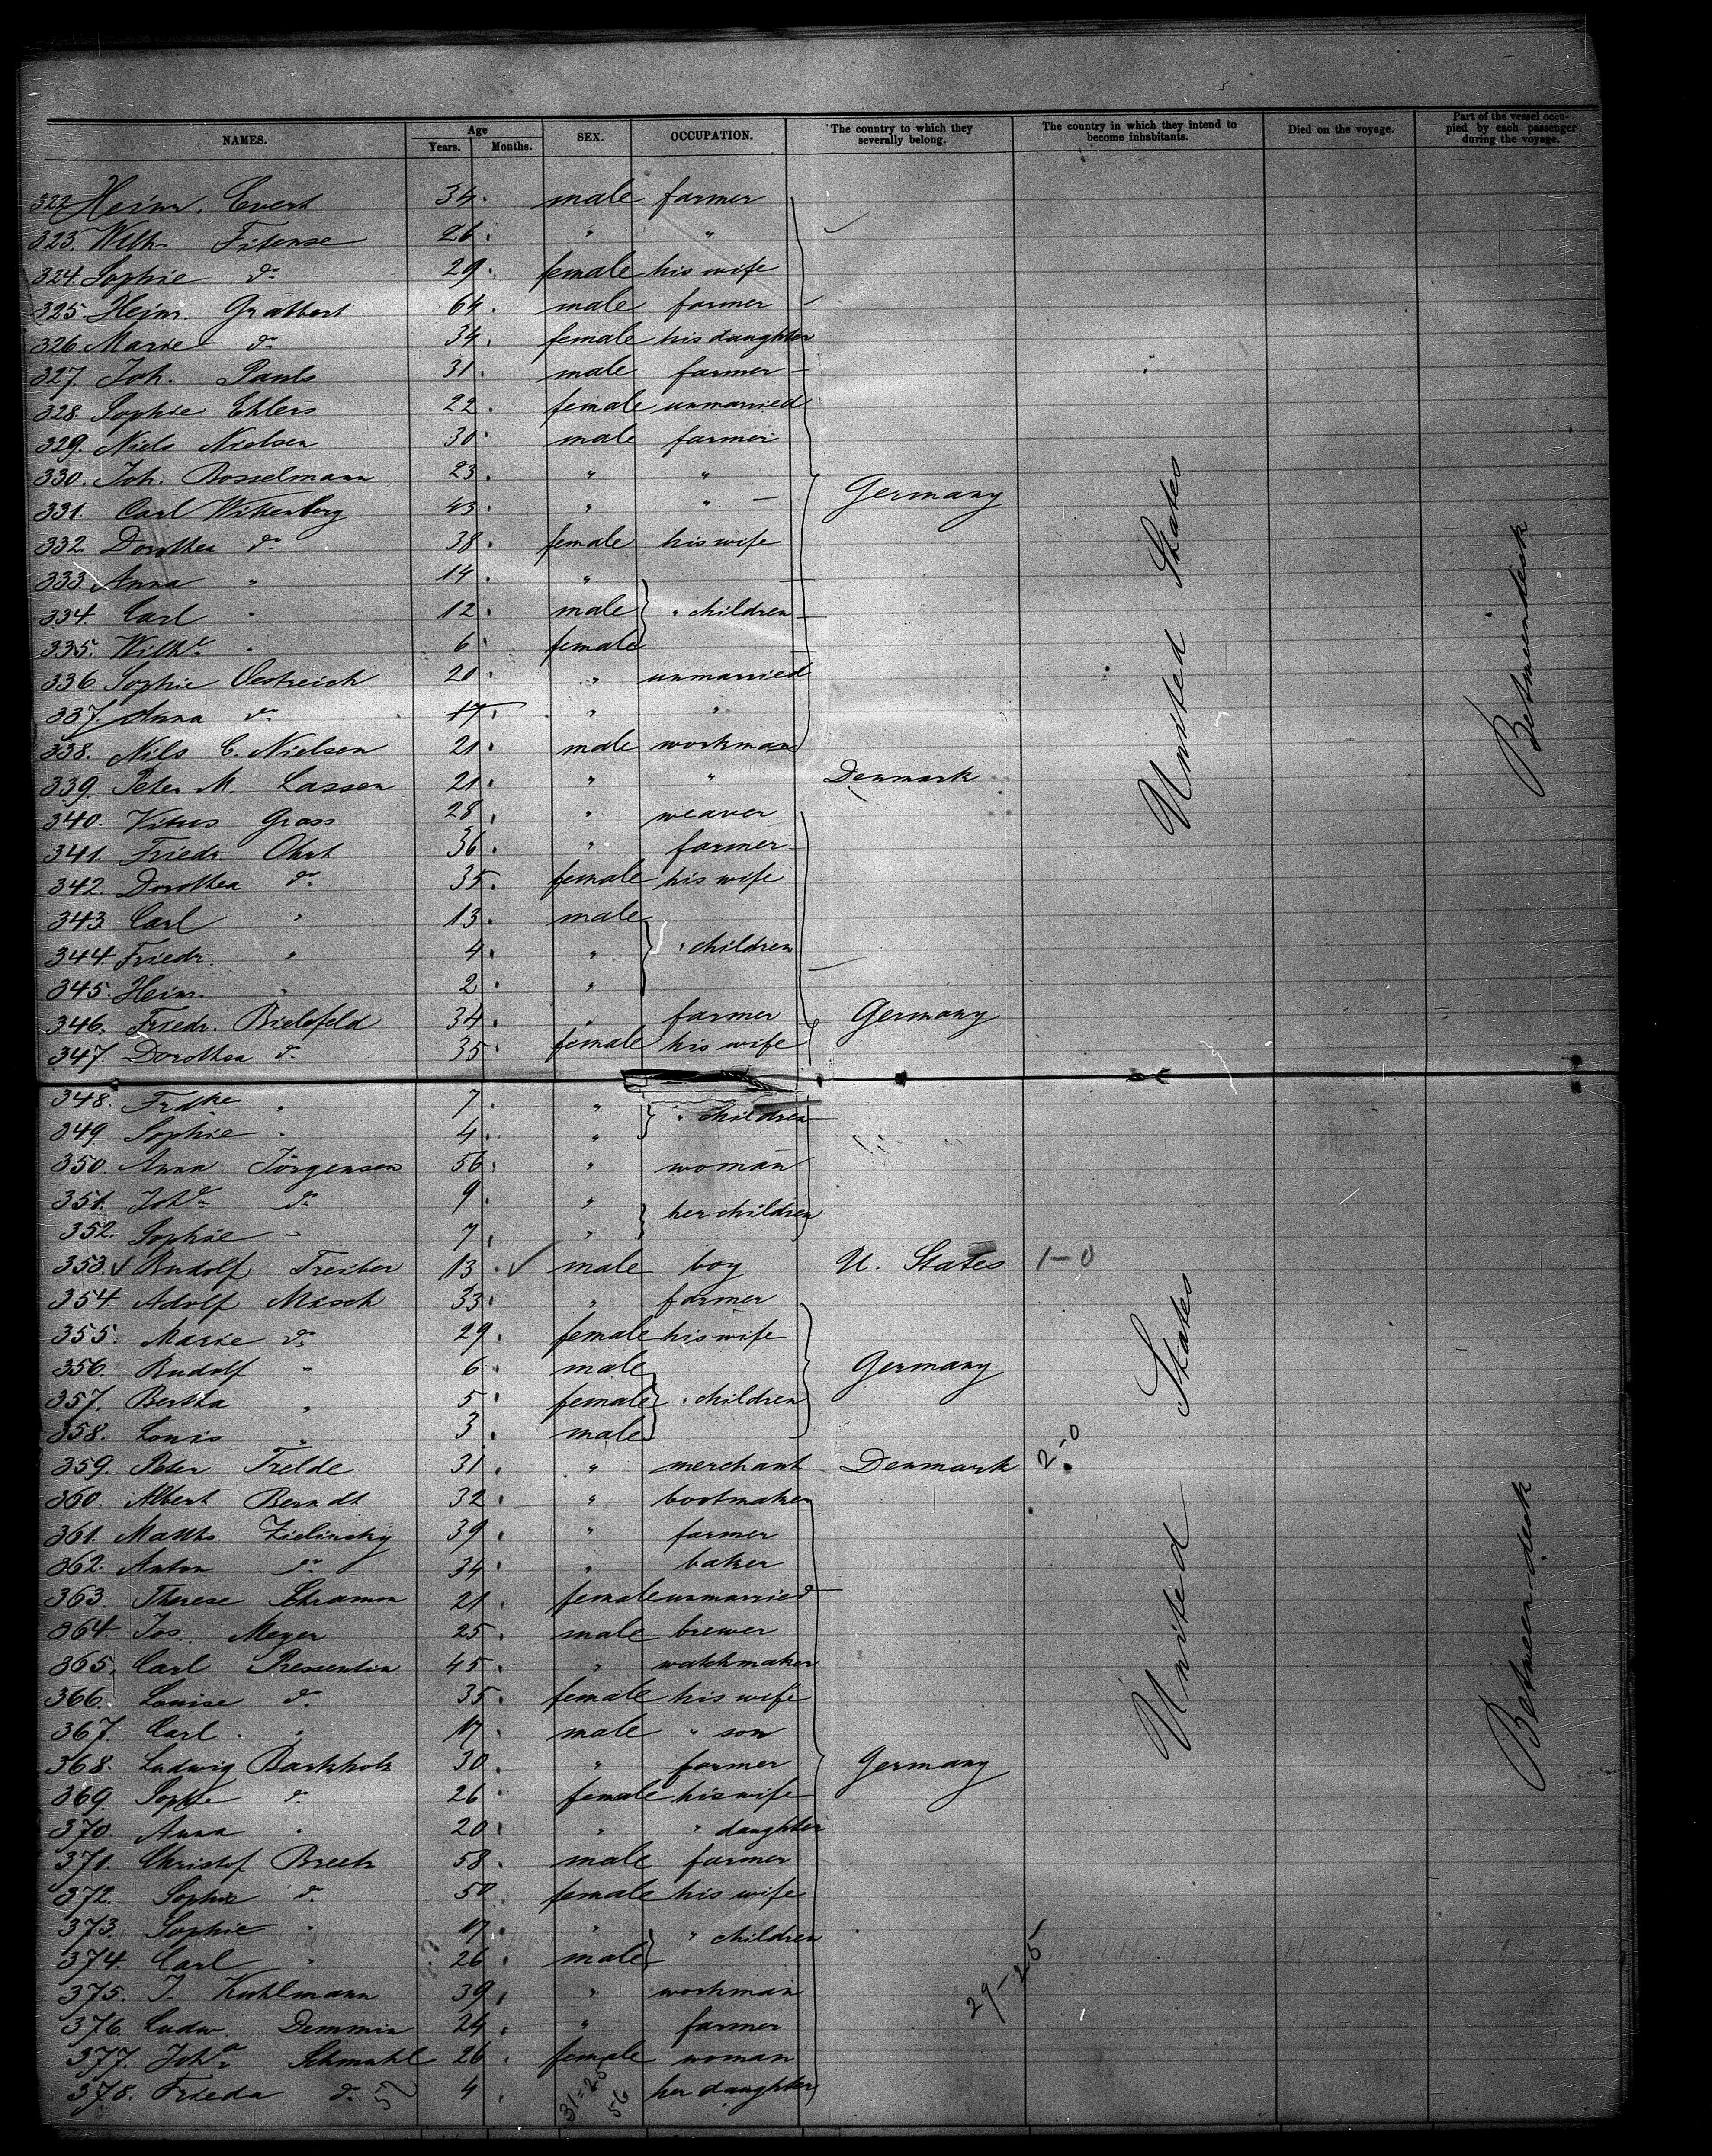 NAMES. Age Years. Months. SEX. OCCUPATION. The country to which they severally belong. The country in which they intend to become inhabitants. Died on the voyage. Part of the vessel occupied by each passenger during the voyage.
322 Heinr. Evert 34. male farmer
323. Wilh. Fitense 26. " "
324. Sophie do 29. female his wife
325. Heinr. Grabbert 64. male farmer
326. Marie do 34. female his daughter
327. Joh. Pauls 31. male farmer
328. Sophie Ehlers 22. female unmarried
329. Niels Nielsen 30. male farmer
330. Joh. Bosselmann 23. " "
331. Carl Wittenberg 43. " " Germany
332. Dorothea do 38. female his wife
333. Anna " 14. "
334. Carl " 12. male " children
335. Wilhe " 6. female
336. Sophie Oestreich 20. " unmarried
337. Anna do 17. " "
338. Nils C. Nielsen 21. male workman
339. Peter M. Lassen 21. " " Denmark
340. Vitus Grass 28. " weaver
341. Friedr. Ohrt 36. " farmer
342. Dorothea do 35. female his wife
343. Carl " 13. male
344. Friedr. " 4. " " children
345. Heinr. " 2. "
346. Friedr. Bielefeld 34. " farmer Germany
347. Dorothea do 35. female his wife
United States
Between deck
348. Frdke " 7. "
349. Sophie " 4. " " children
350. Anna Jörgensen 56. " woman
351. Johe do 9. " her children
352. Sophie " 7. "
353. Rudolf Treiber 13. male boy U. States 1-0
354. Adolf Misch 33. " farmer
355. Marie do 29. female his wife
356. Rudolf " 6. male Germany
357. Bertha " 5. female " children
358. Louis " 3. male
359. Peter Trelde 31. " merchant Denmark 2-0
360. Albert Berndt 32. " bootmaker
361. Matths. Zielinsky 39. " farmer
362. Anton do 34. " baker
363. Therese Schramm 21. female unmarried
364. Jos. Meyer 25. male brewer
365. Carl Pressentin 45. " watchmaker
366. Louise do 35. female his wife
367. Carl " 17. male " son
368. Ludwig Barkholz 30. " farmer Germany
369. Sophie do 26. female his wife
370. Anna " 20. " " daughter
371. Christof Breetz 58. male farmer
372. Sophie do 50. female his wife
373. Sophie " 17. " " children
374. Carl " 26. male
375. J. Kuhlmann 39. " workman
376. Ludw. Demmin 24. " farmer
377. Joha Schmahl 26. female woman
378. Frieda do 4. her daughter
United States
Between deck
29-25
57
31-25
56